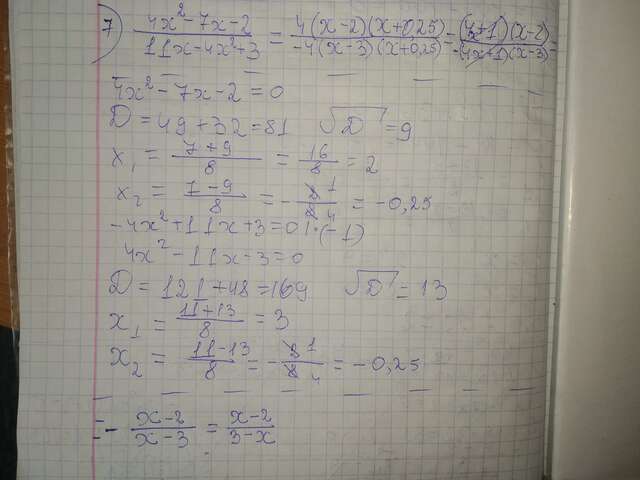 7) (4x²-7x-2)/(11x-4x²+3) = (4(x-2)(x+0,25))/(-4(x-3)(x+0,25)) = ((4x+1)(x-2))/(-(4x+1)(x-3)) =
4x²-7x-2=0
D=49+32=81 √D=9
x₁ = (7+9)/8 = 16/8 = 2
x₂ = (7-9)/8 = -2/8 1 4 = -0,25
-4x²+11x+3=0 |·(-1)
4x²-11x-3=0
D=121+48=169 √D=13
x₁ = (11+13)/8 = 3
x₂ = (11-13)/8 = -2/8 1 4 = -0,25
= - (x-2)/(x-3) = (x-2)/(3-x)